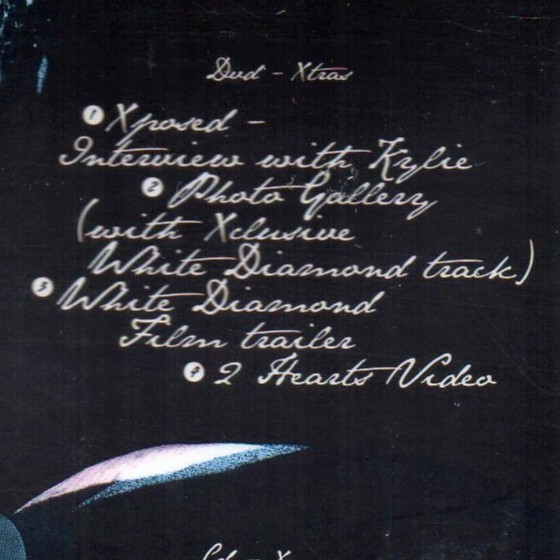 Dvd - Xtras
1 Xposed -
Interview with Kylie
2 Photo Gallery
(with Xclusive
White Diamond track)
3 White Diamond
Film trailer
4 2 Hearts Video